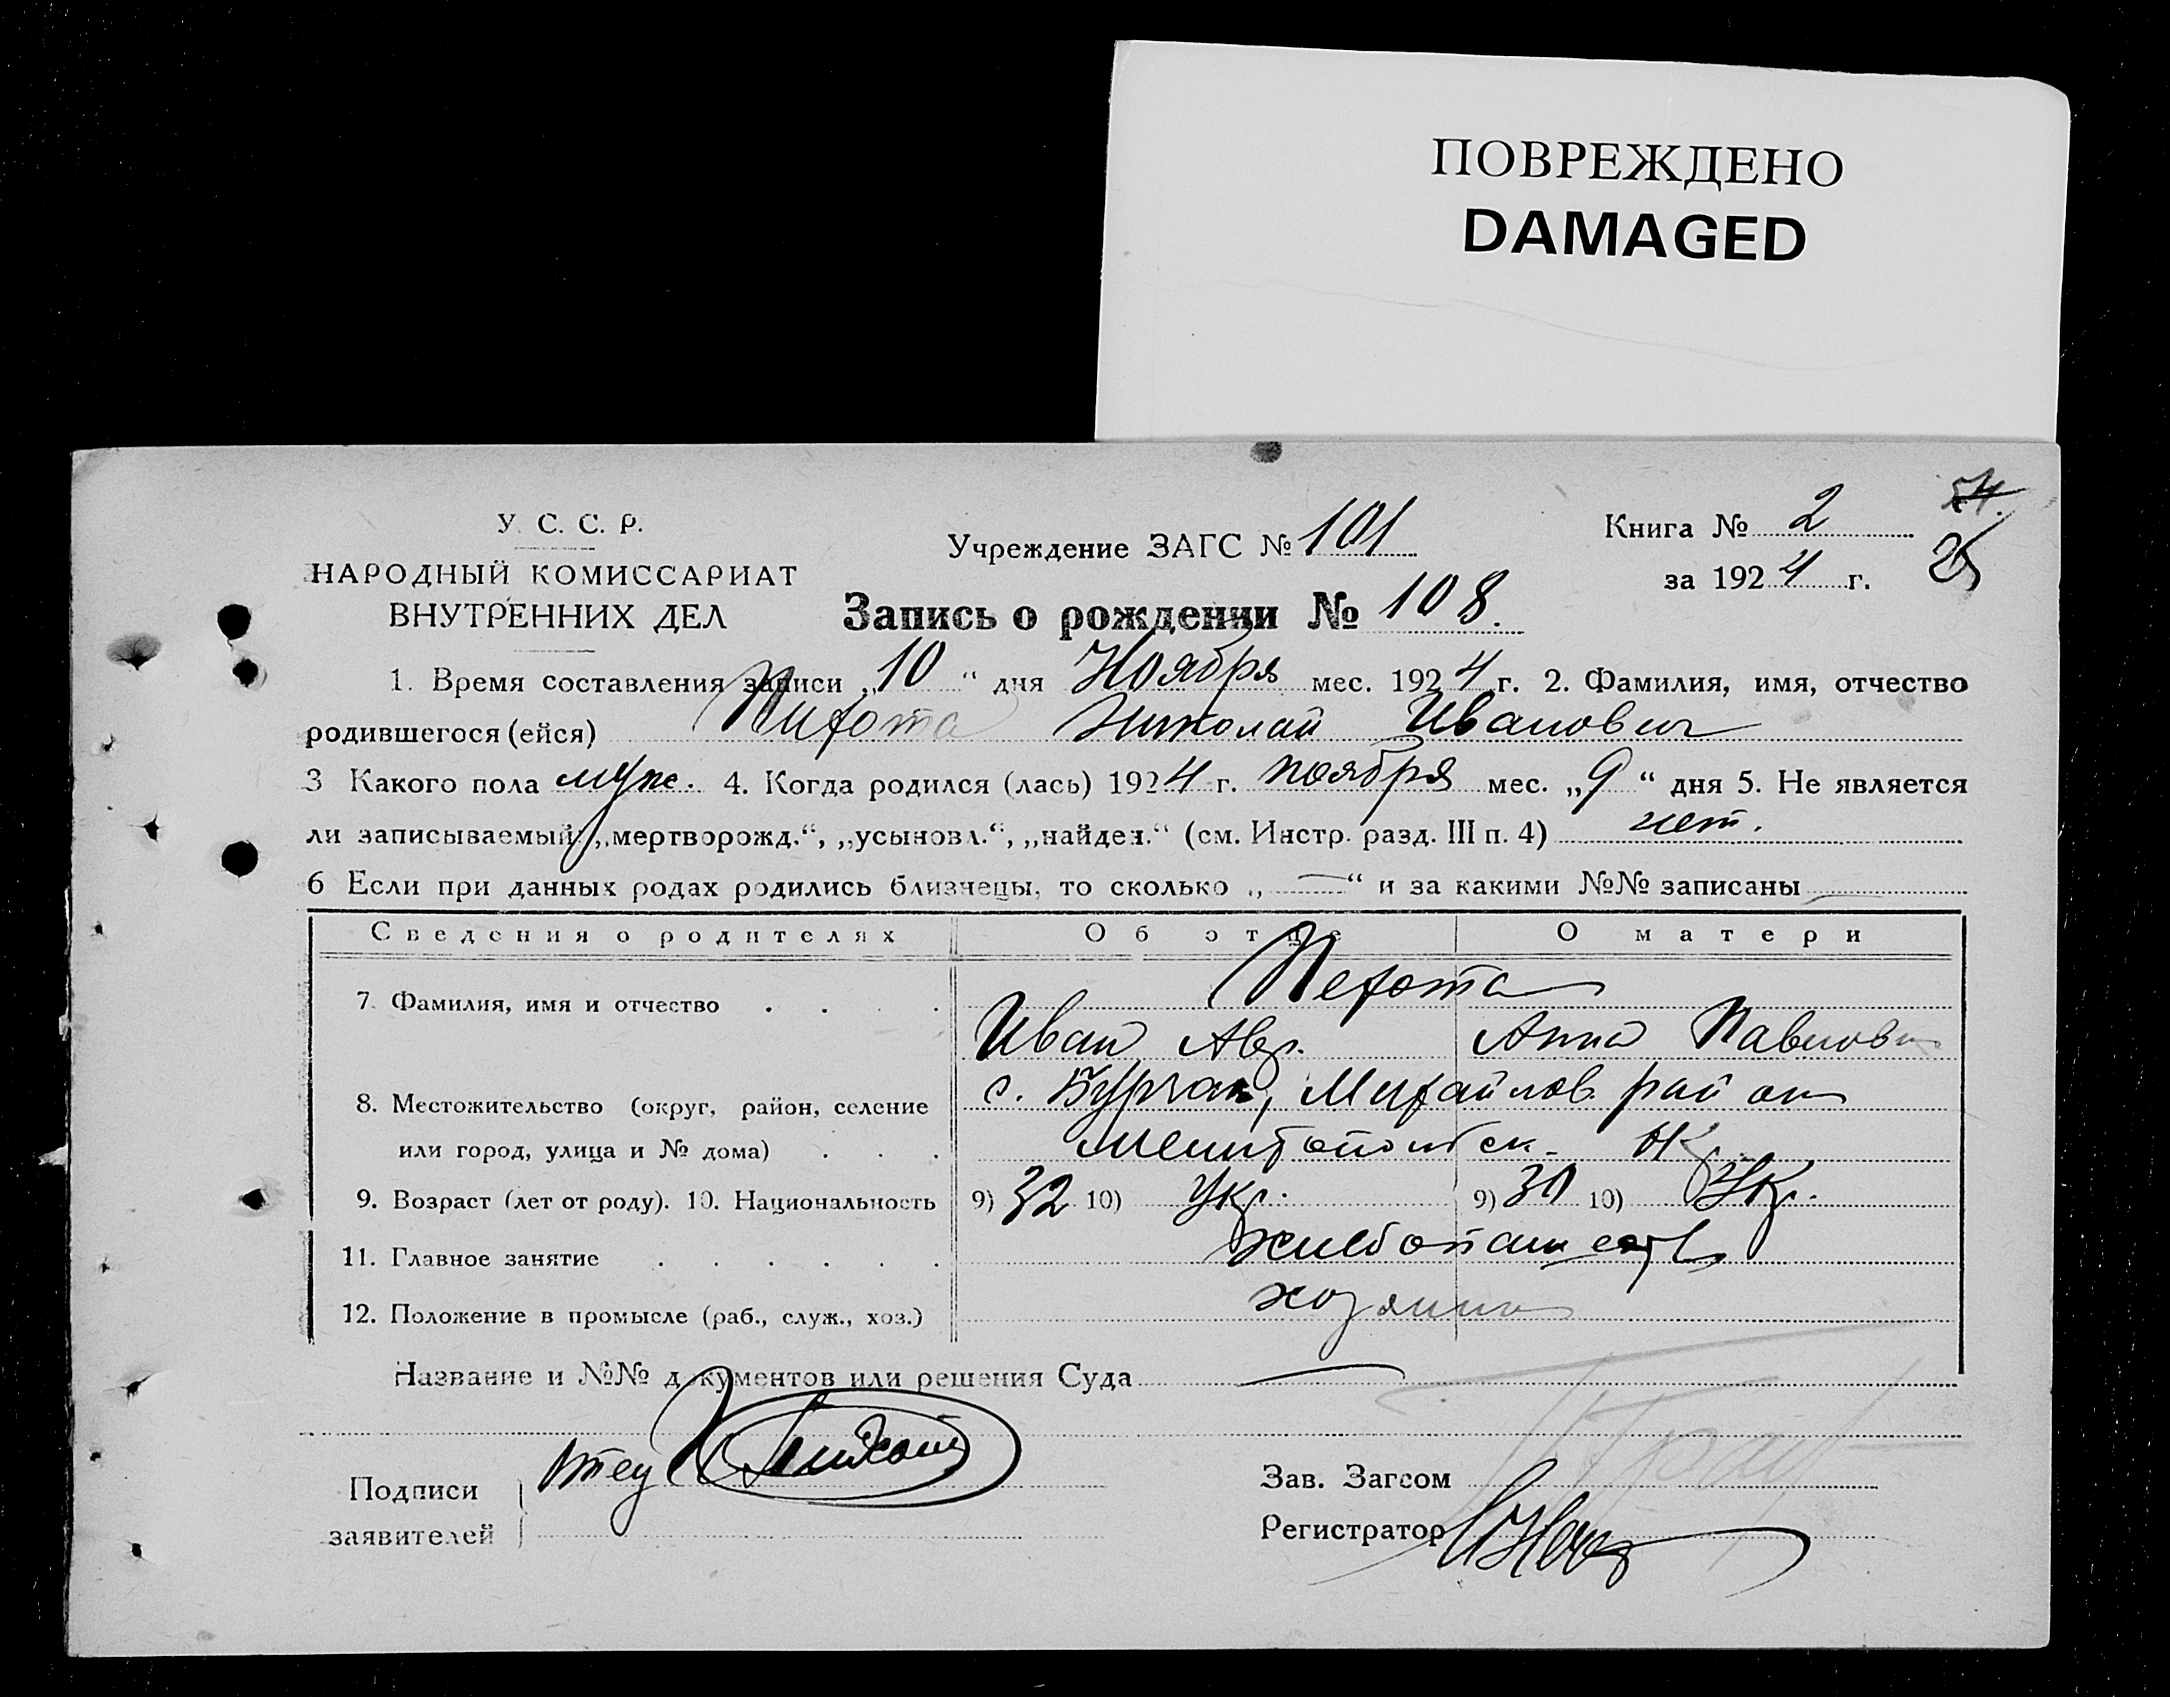 ПОВРЕЖДЕНО
DAMAGED
У. С. С. Р.
НАРОДНЫЙ КОМИССАРИАТ
ВНУТРЕННИХ ДЕЛ
Учреждение ЗАГС № 101
Книга № 2
за 1924 г.
25
Запись о рождении № 108.
1. Время составления записи „10“ дня Ноября мес. 1924 г. 2. Фамилия, имя, отчество
родившегося (ейся) Пихота Николай Иванович
3 Какого пола муж. 4. Когда родился (лась) 1924 г. ноября мес. „9“ дня 5. Не является
ли записываемый: „мертворожд.“, „усыновл.“, „найден.“ (см. Инстр. разд. III п. 4) нет.
6 Если при данных родах родились близнецы, то сколько „—“ и за какими №№ записаны —
Сведения о родителях Об отце О матери
7. Фамилия, имя и отчество . . . . Пехота
Иван Авр. Анна Павловн
8. Местожительство (округ, район, селение с. Бурчак, Михайлов. район
или город, улица и № дома) . . . Мелитопольск.
9. Возраст (лет от роду). 10. Национальность 9) 32 10) Укр. 9) 30 10) Укр.
11. Главное занятие . . . . . . хлебопашество
12. Положение в промысле (раб., служ., хоз.) хозяин
Название и №№ документов или решения Суда —
Подписи
заявителей
отец
Зав. Загсом
Регистратор